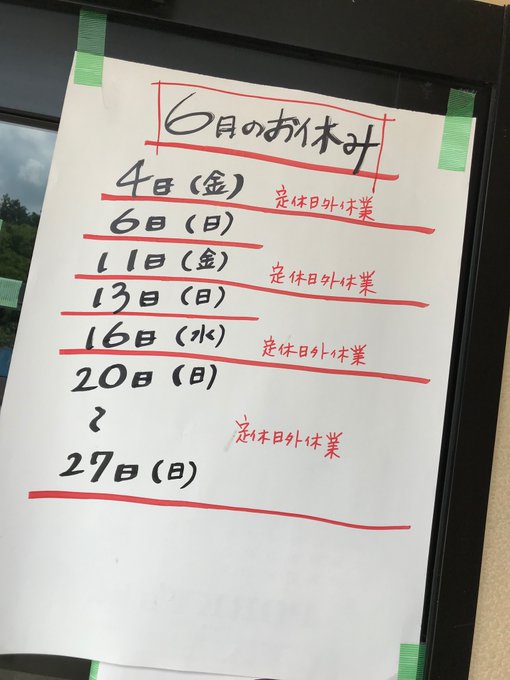 6月のお休み
4日(金) 定休日外休業
6日(日)
11日(金) 定休日外休業
13日(日)
16日(水) 定休日外休業
20日(日)
〜 定休日外休業
27日(日)